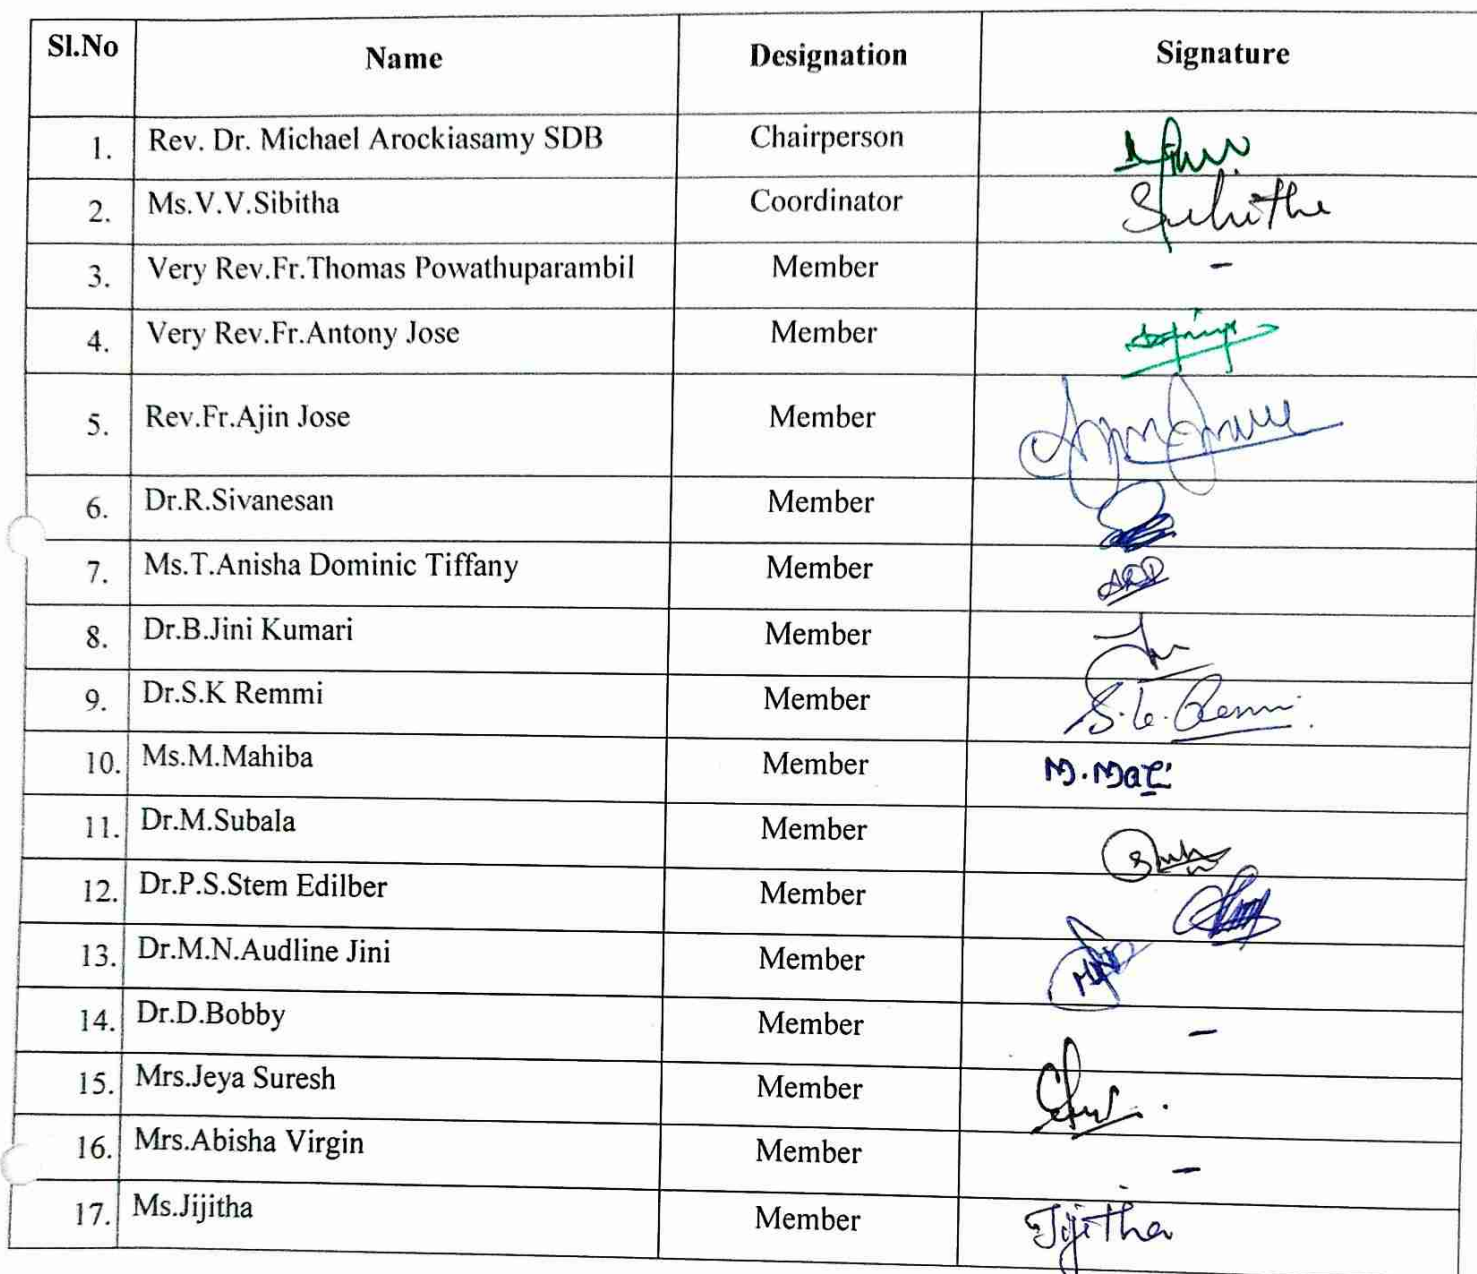 Sl.No Name Designation Signature
1. Rev. Dr. Michael Arockiasamy SDB Chairperson
2. Ms.V.V.Sibitha Coordinator
3. Very Rev.Fr.Thomas Powathuparambil Member -
4. Very Rev.Fr.Antony Jose Member
5. Rev.Fr.Ajin Jose Member
6. Dr.R.Sivanesan Member
7. Ms.T.Anisha Dominic Tiffany Member
8. Dr.B.Jini Kumari Member
9. Dr.S.K Remmi Member
10. Ms.M.Mahiba Member
11. Dr.M.Subala Member
12. Dr.P.S.Stem Edilber Member
13. Dr.M.N.Audline Jini Member
14. Dr.D.Bobby Member -
15. Mrs.Jeya Suresh Member
16. Mrs.Abisha Virgin Member -
17. Ms.Jijitha Member Jijitha